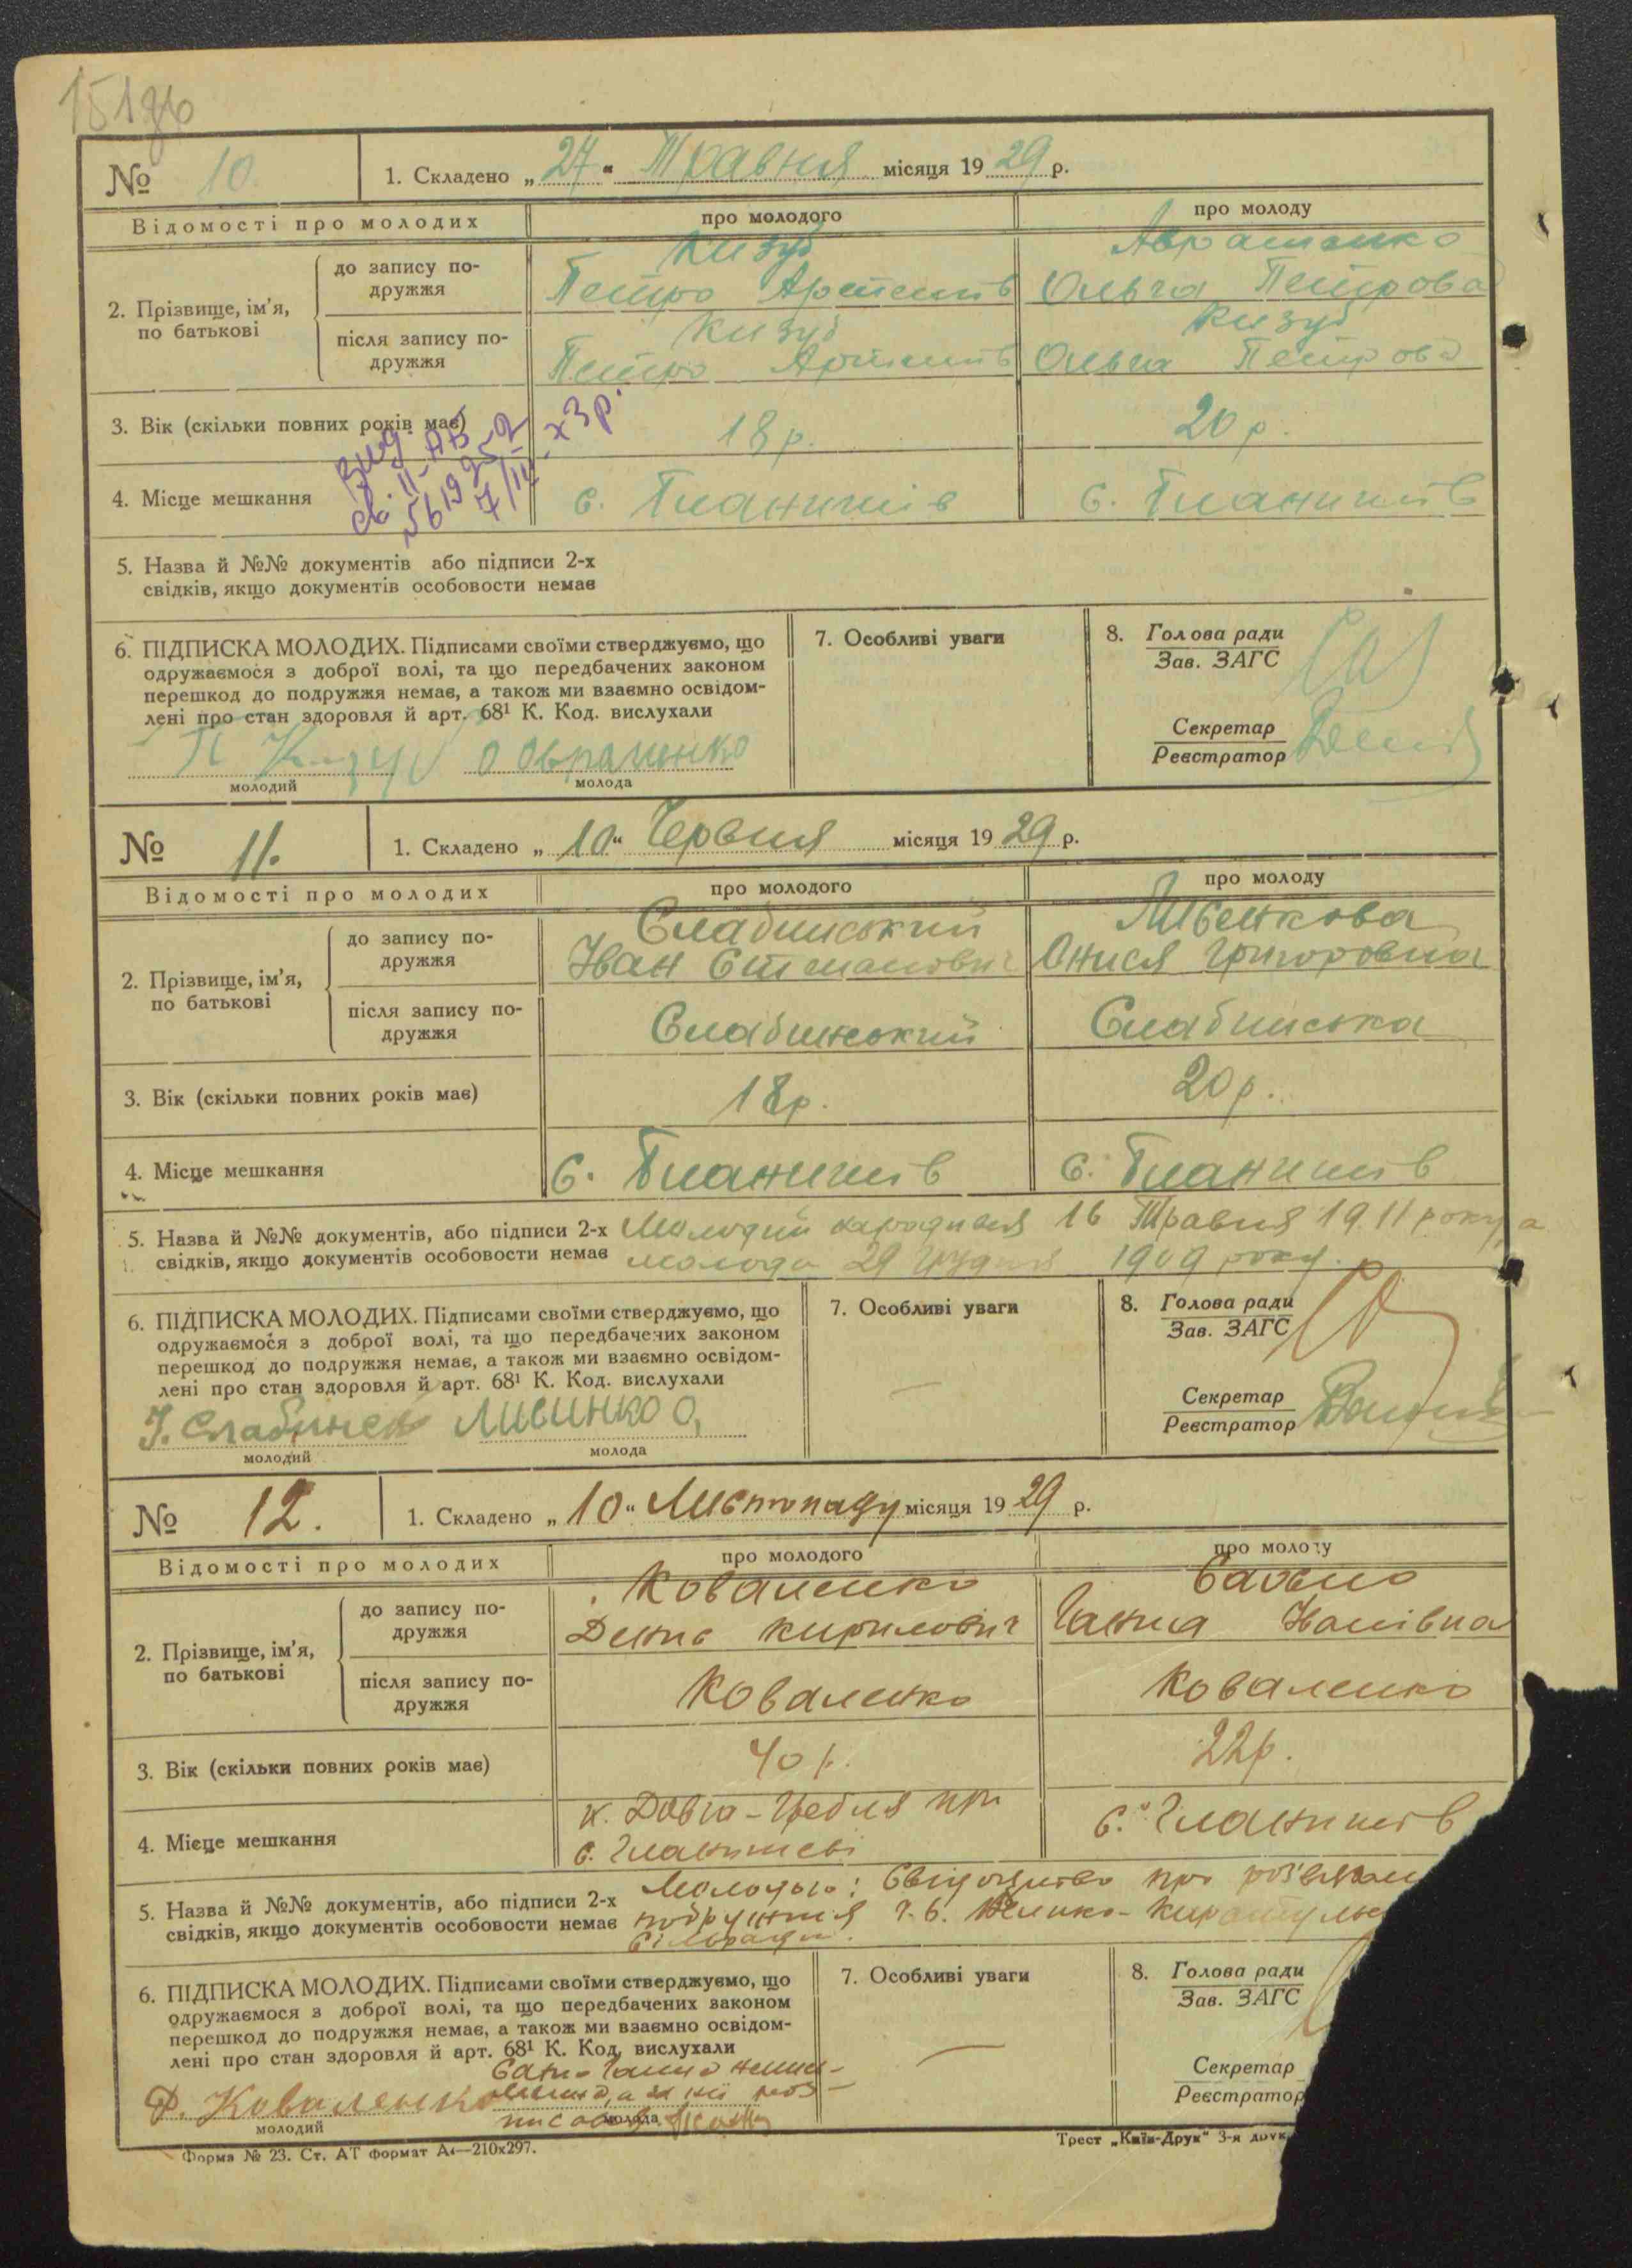 № 10. 1. Складено „27“ Травня місяця 1929 р.
Відомості про молодих про молодого про молоду
2. Прізвище, ім’я, по батькові
до запису подружжя
Кизуб
Петро Артемів Ольга Петрова
після запису подружжя
Кизуб Кизуб
Петро Артемів Ольга Петрова
3. Вік (скільки повних років має) 18 р. 20 р.
4. Місце мешкання с. Гланишів с. Гланишів
5. Назва й №№ документів або підписи 2-х
свідків, якщо документів особовости немає
6. ПІДПИСКА МОЛОДИХ. Підписами своїми стверджуємо, що
одружаємося з доброї волі, та що передбачених законом
перешкод до подружжя немає, а також ми взаємно освідом-
лені про стан здоровля й арт. 68¹ К. Код. вислухали
П Кизуб О Овраменко
молодий молода
7. Особливі уваги
8. Голова ради
Зав. ЗАГС
Секретар
Реєстратор
№ 11. 1. Складено „10“ Червня місяця 1929 р.
Відомості про молодих про молодого про молоду
2. Прізвище, ім’я, по батькові
до запису подружжя
Слабинський Ливенкова
Іван Степанович Онися Григоровна
після запису подружжя
Слабинський Слабинська
3. Вік (скільки повних років має) 18р. 20р.
4. Місце мешкання с. Гланишів с. Гланишів
5. Назва й №№ документів, або підписи 2-х Молодий народився 16 Травня 1911 року, а
свідків, якщо документів особовости немає молода 29 Грудня 1909 року.
6. ПІДПИСКА МОЛОДИХ. Підписами своїми стверджуємо, що
одружаємося з доброї волі, та що передбачених законом
перешкод до подружжя немає, а також ми взаємно освідом-
лені про стан здоровля й арт. 68¹ К. Код. вислухали
І. Слабинск Ливинко О,
молодий молода
7. Особливі уваги —
8. Голова ради
Зав. ЗАГС
Секретар
Реєстратор
№ 12. 1. Складено „10“ Листопаду місяця 1929 р.
Відомості про молодих про молодого про молоду
2. Прізвище, ім’я, по батькові
до запису подружжя
Коваленко
Денис Кирилович Ганна
після запису подружжя
Коваленко Коваленко
3. Вік (скільки повних років має) 40 р. 22р.
4. Місце мешкання х. Довга-Гребля при
с. Гланишеві с. Гланишів
5. Назва й №№ документів, або підписи 2-х Молодого: Свідоцтво про
свідків, якщо документів особовости немає подружжя
Сільради.
6. ПІДПИСКА МОЛОДИХ. Підписами своїми стверджуємо, що
одружаємося з доброї волі, та що передбачених законом
перешкод до подружжя немає, а також ми взаємно освідом-
лені про стан здоровля й арт. 68¹ К. Код. вислухали
Д. Коваленко
молодий молода
7. Особливі уваги —
8. Голова ради
Зав. ЗАГС
Секретар
Реєстратор
Форма № 23. Ст. АТ формат А4—210х297.
Трест „Київ-Друк“ 3-я друк